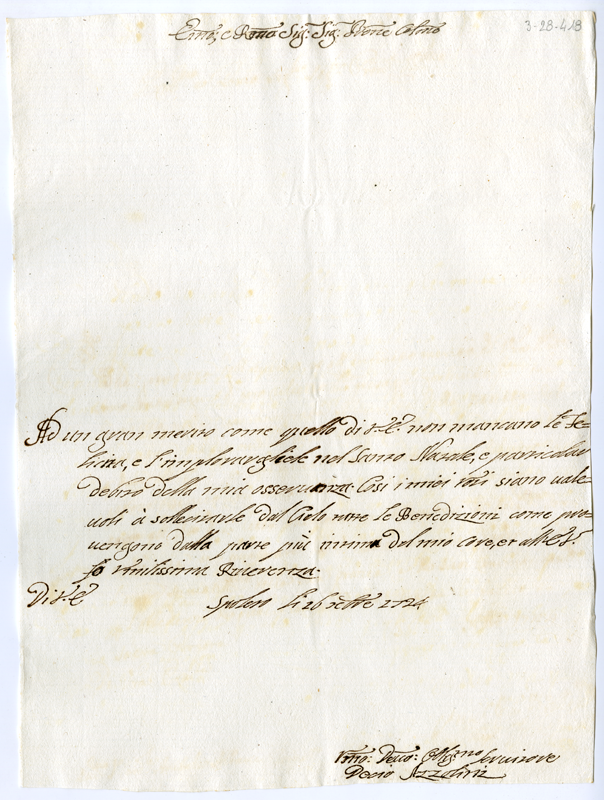 3-28-418
Emo: e Rmo Sig: Sig: Prone Colmo
Ad un gran merito come quello di V: E: non mancano le Fe-
licità, e l'implorargliele nel Santo Natale, e particolar
debito della mia osservanza. Così i miei voti siano vale-
voli à sollecitarle dal Cielo tutte le Benedizioni come pro-
vengono dalla parte più intima del mio core, et all' E: V:
fò umilissima Riverenza.
Di V: E:
Spoleto li 16 Xbre 1724
Vmo: Devo: Obligmo Servitore
Decio Azzolini